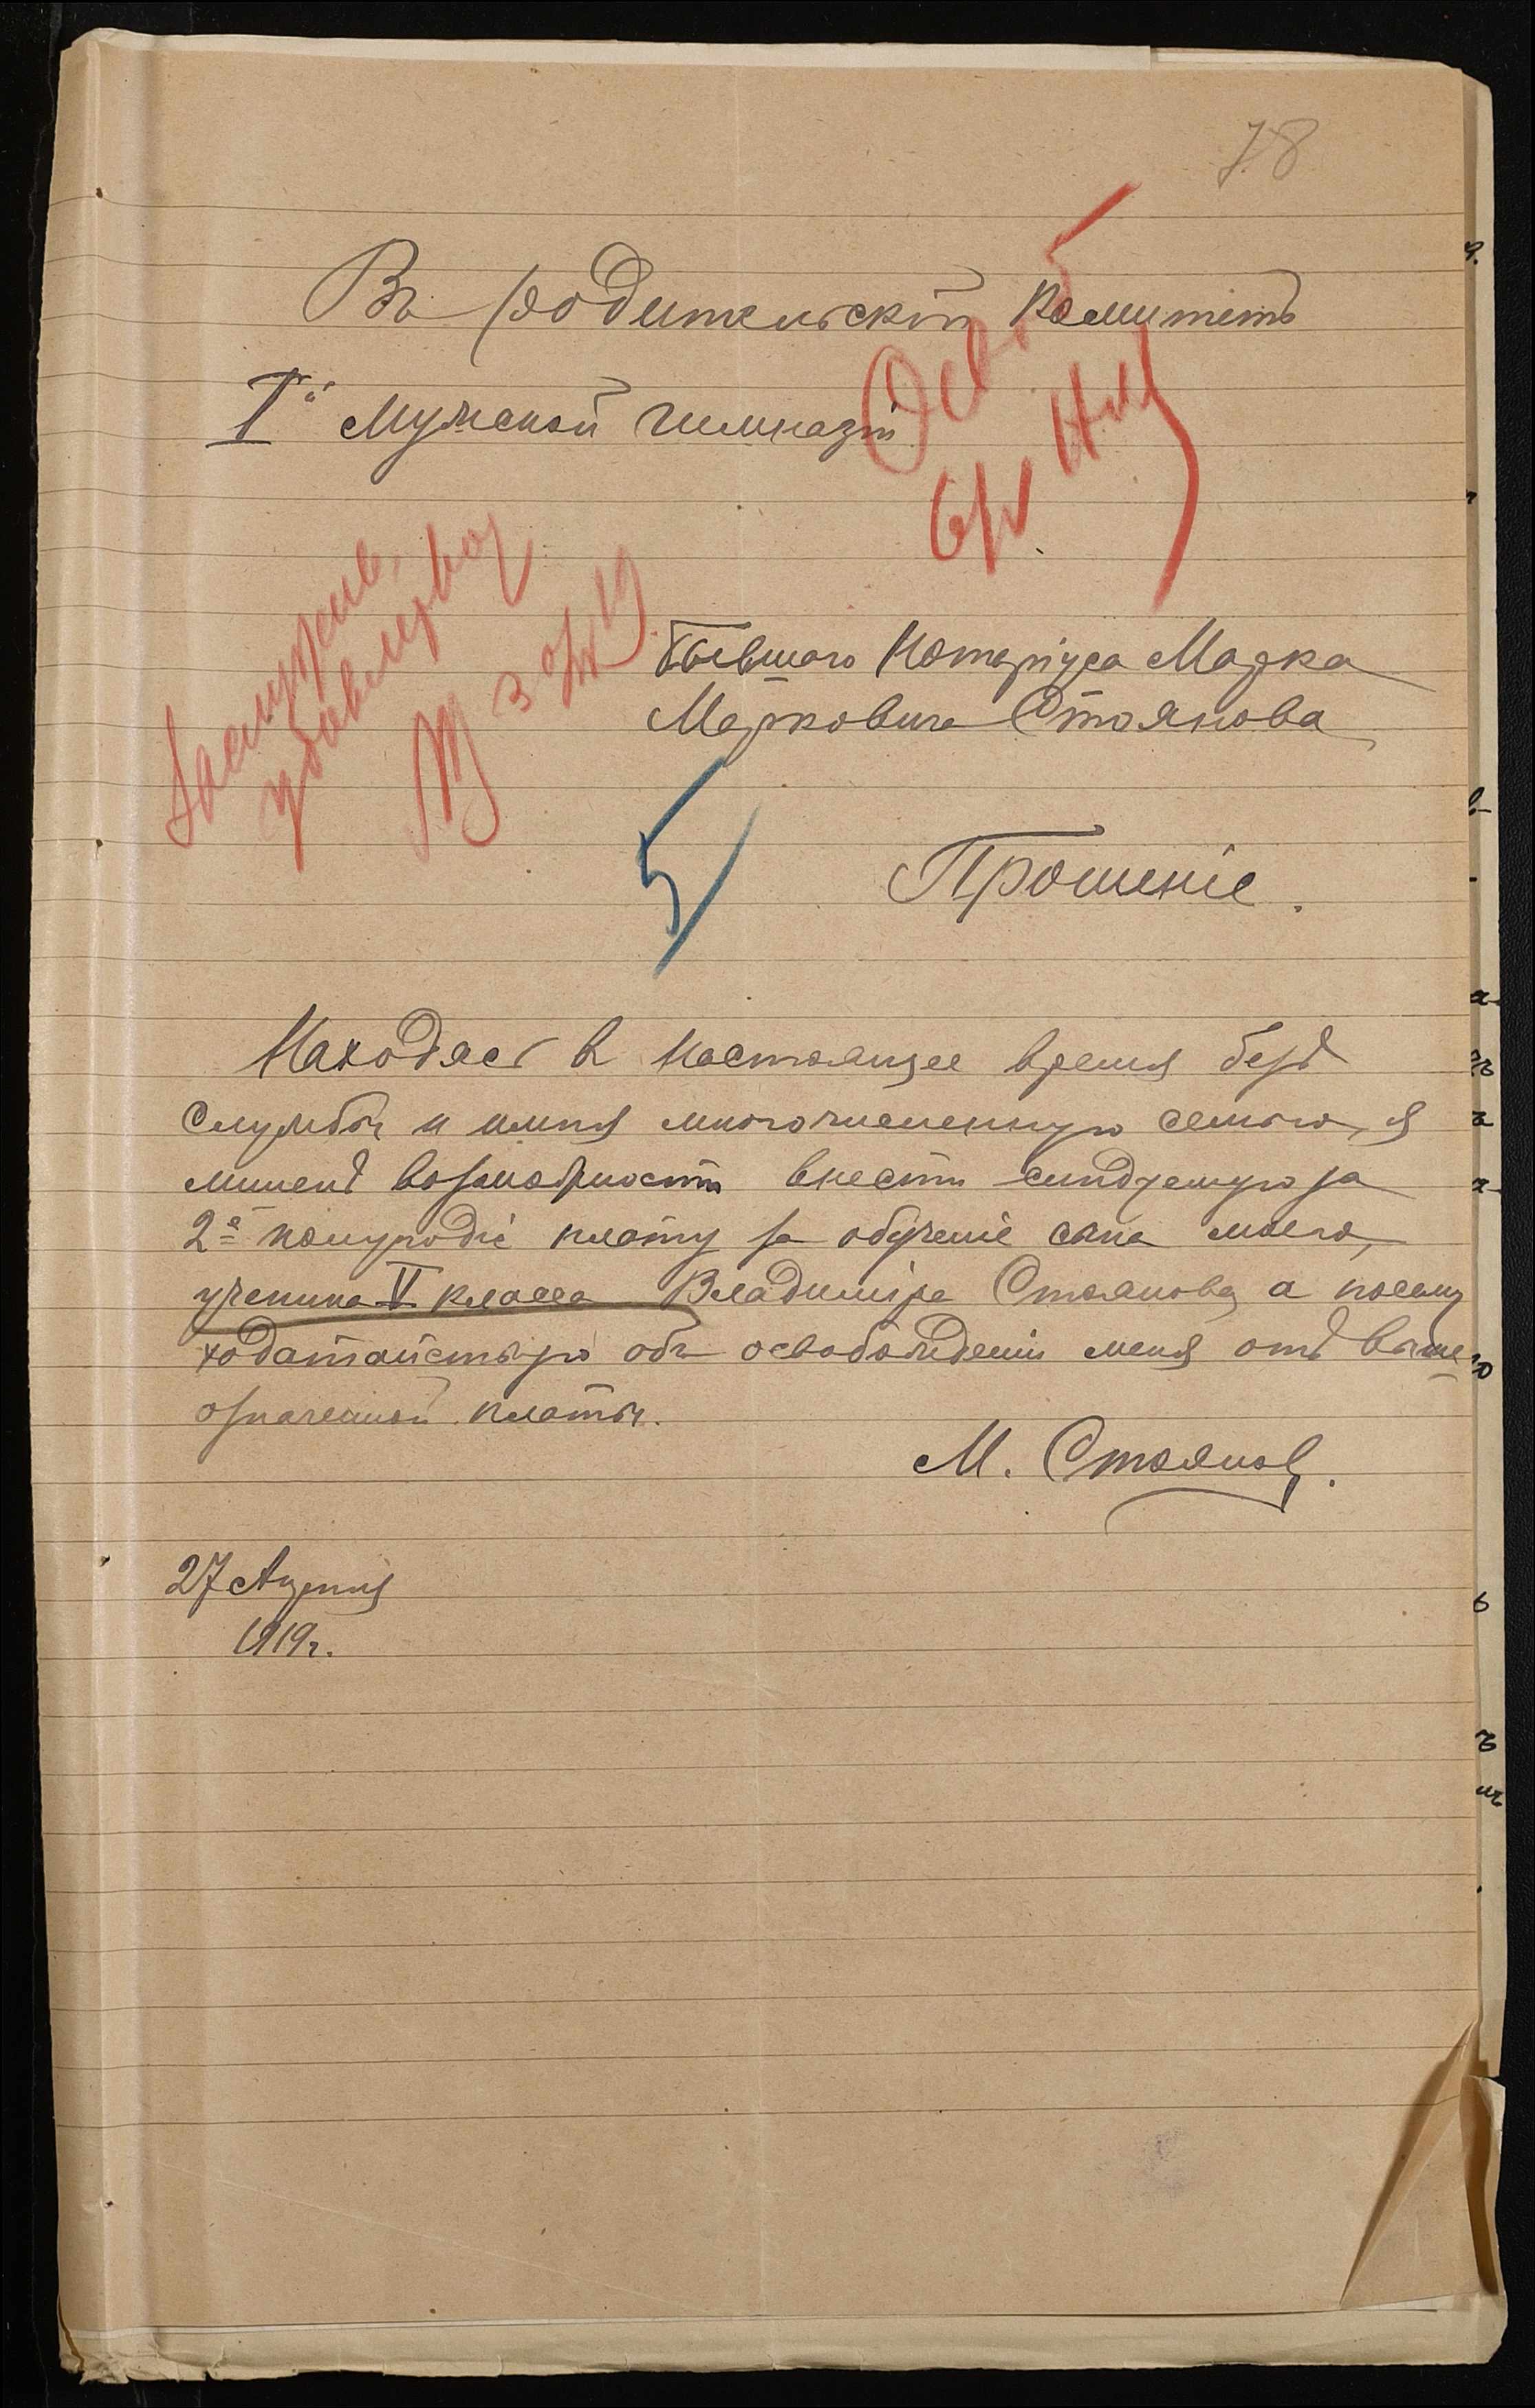 78
Въ родительскій комитетъ
Iй Мужской гимназіи
Освоб
заслужив,
Бывшаго Нотаріуса Марка
Марковича Стоянова
5
Прошеніе.
Находясь в настоящее время безъ
службы и имѣя многочисленную семью, я
лишенъ возможности внести слѣдуемую за
2е полугодіе плату за обученіе сына моего,
ученика V класса Владиміра Стоянова, а посему
ходатайствую объ освобожденіи меня отъ выше
означенной платы.
М. Стоянов.
27 Апрѣля
1919г.